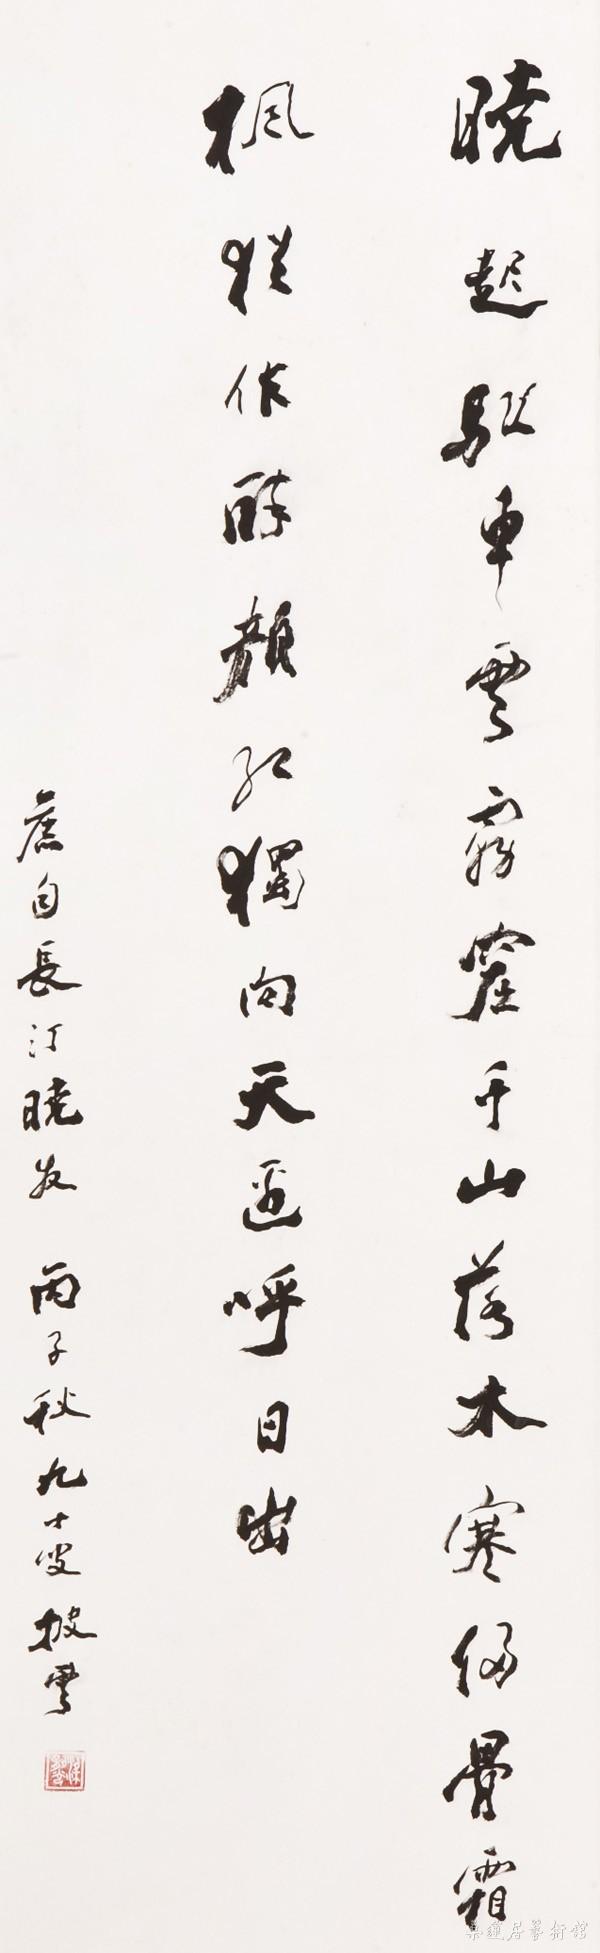 曉起驅車雲霧窟千山落木寒侵骨霜
楓猶作醉顏紅獨向天邊呼日出
長汀曉發 丙子秋九十叟披雲
蓮居藝術館